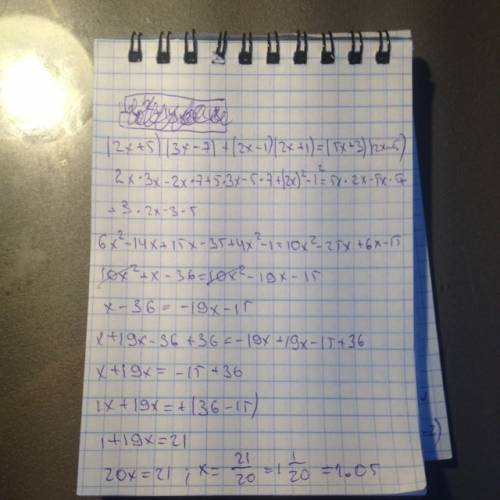 (2x+5)(3x-7)+(2x-1)(2x+1)=(5x+3)(2x-5)
2x·3x-2x·7+5·3x-5·7+(2x)²-1²=5x·2x-5x·5+
+3·2x-3·5
6x²-14x+15x-35+4x²-1=10x²-25x+6x-15
10x²+x-36=10x²-19x-15
x-36=-19x-15
x+19x-36+36=-19x+19x-15+36
x+19x=-15+36
1x+19x=+(36-15)
1+19x=21
20x=21; x=21/20=1 1/20=1.05